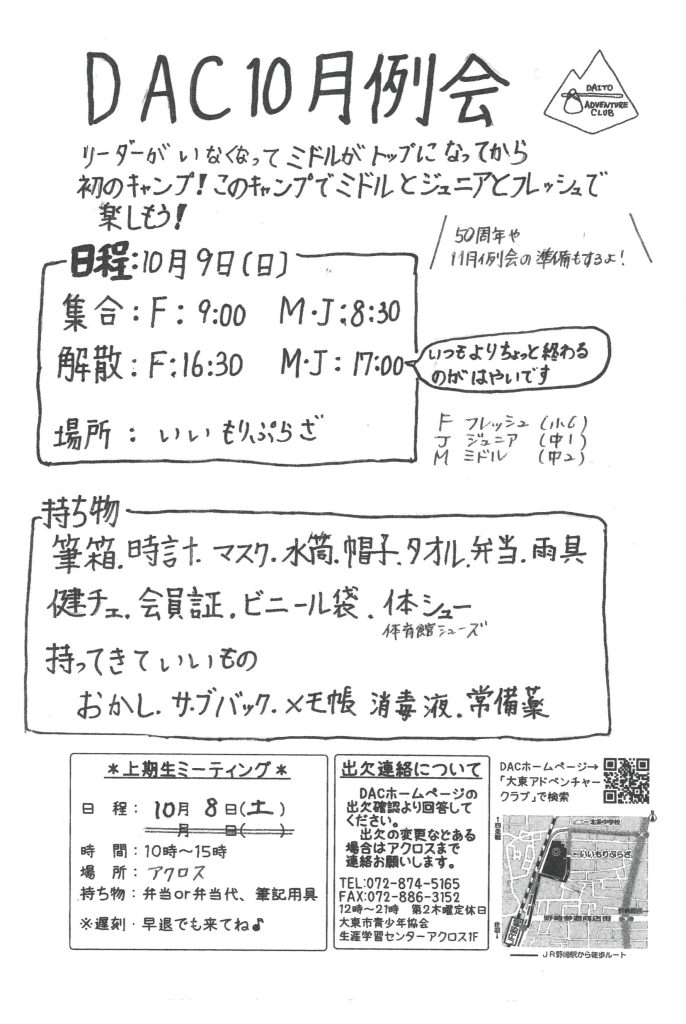 DAC10月例会
DAITO
ADVENTURE
CLUB
リーダーがいなくなってミドルがトップになってから
初のキャンプ！このキャンプでミドルとジュニアとフレッシュで
楽しもう！
50周年や
11月例会の準備もするよ！
日程：10月9日(日)
集合：F：9:00　M・J：8:30
解散：F：16:30　M・J：17:00
いつもよりちょっと終わる
のがはやいです
場所：いいもりぷらざ
F フレッシュ (小6)
J ジュニア (中1)
M ミドル (中2)
持ち物
筆箱．時計．マスク．水筒．帽子．タオル．弁当．雨具
健チェ．会員証．ビニール袋．体シュー
体育館シューズ
持ってきていいもの
おかし．サブバック．メモ帳 消毒液．常備薬
＊上期生ミーティング＊
日　程：10月 8日(土)
月　日( )
時　間：10時～15時
場　所：アクロス
持ち物：弁当or弁当代、筆記用具
※遅刻・早退でも来てね♪
出欠連絡について
DACホームページの
出欠確認より回答して
ください。
出欠の変更などある
場合はアクロスまで
連絡お願いします。
TEL:072-874-5165
FAX:072-886-3152
12時～21時　第2木曜定休日
大東市青少年協会
生涯学習センターアクロス1F
DACホームページ→
「大東アドベンチャー
クラブ」で検索
↑四条畷
北条中学校
いいもりぷらざ
野崎参道商店街
JR野崎
住道↓
JR野崎駅から徒歩ルート